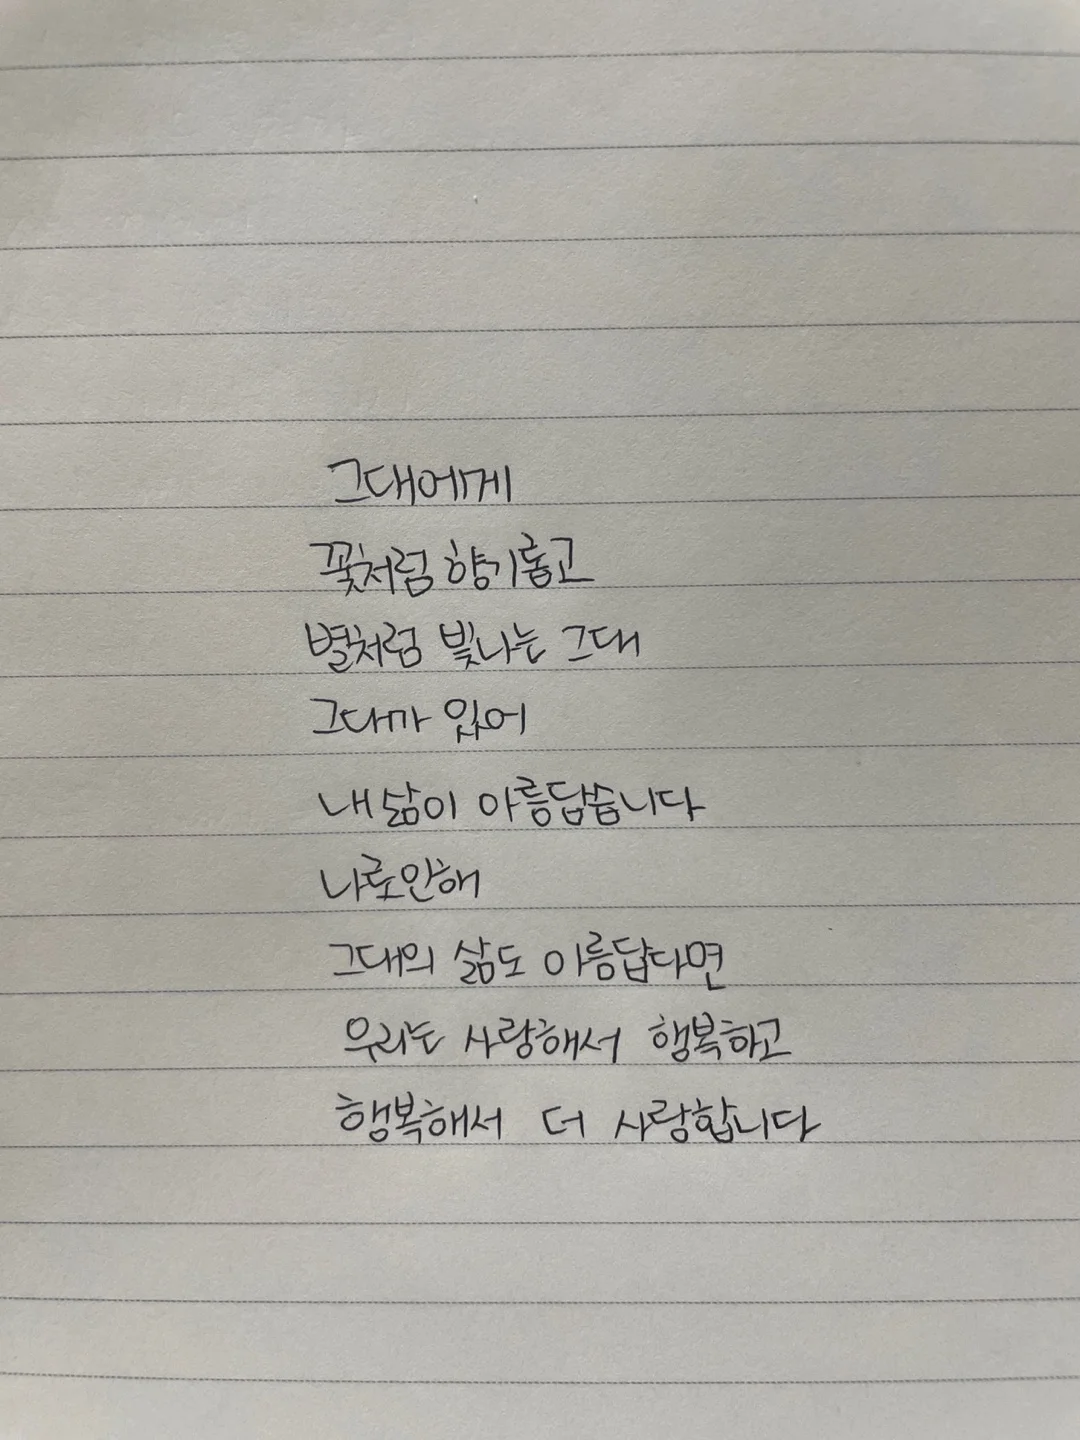 그대에게
꽃처럼 향기롭고
별처럼 빛나는 그대
그대가 있어
내 삶이 아름답습니다
나로인해
그대의 삶도 아름답다면
우리는 사랑해서 행복하고
행복해서 더 사랑합니다